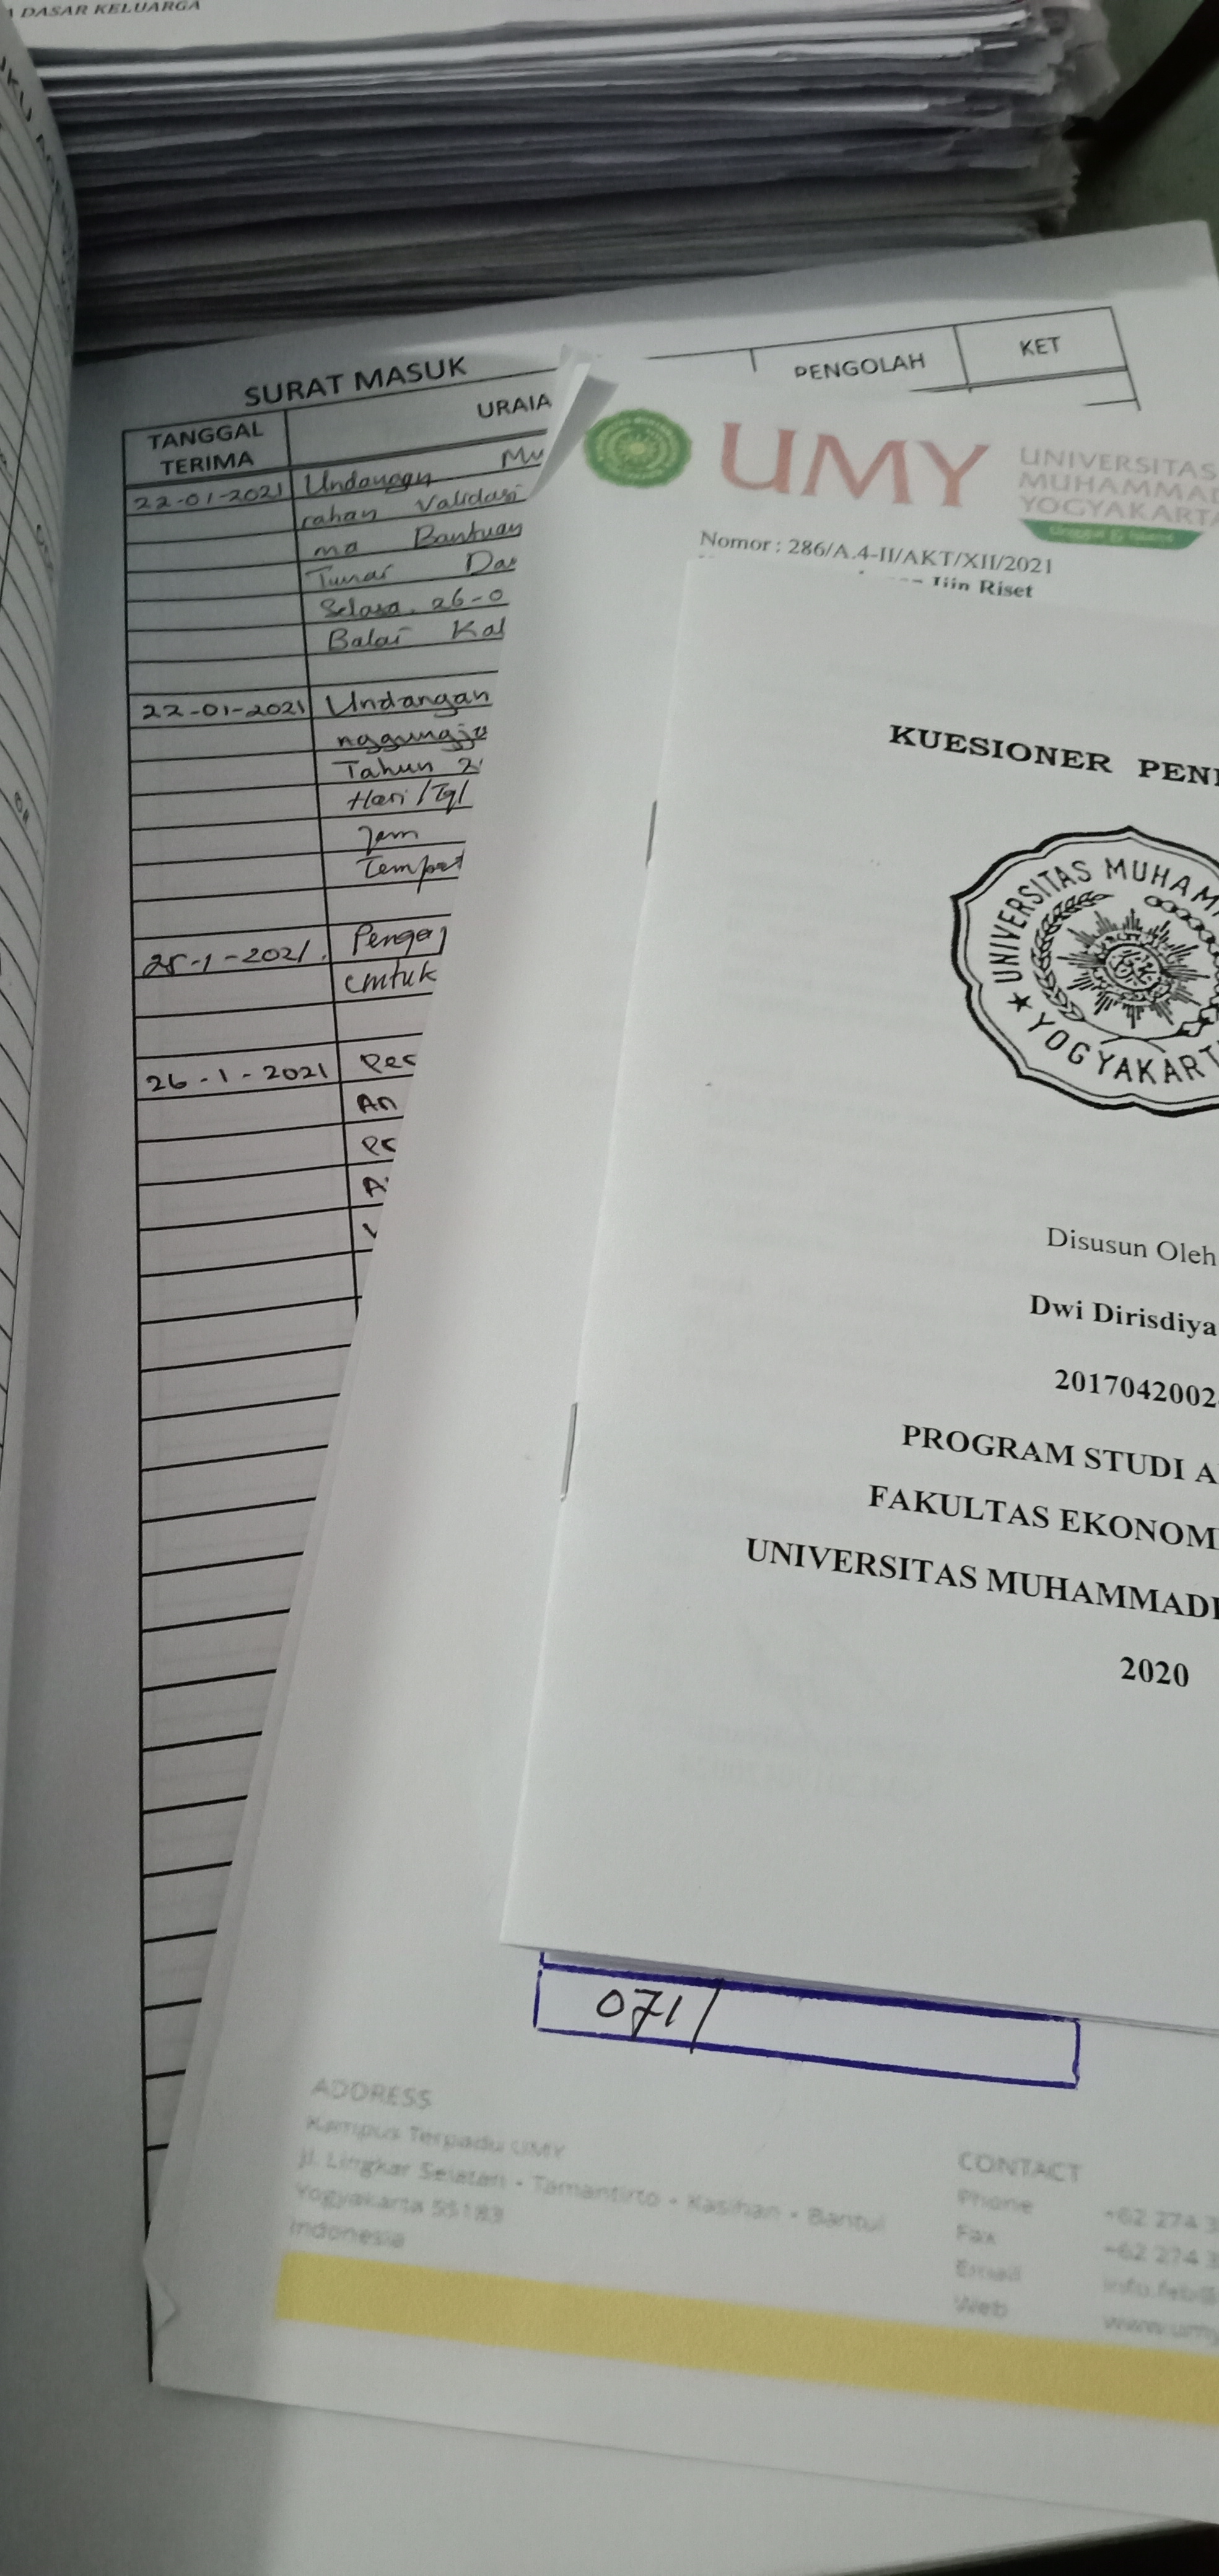 DASAR KELUARGA
SURAT MASUK
TANGGAL TERIMA
URAIA
PENGOLAH
KET
22-01-2021 Undangan Mu
rahan Validasi
ma Bantuan
Tunai Da
Selasa, 26-0
Balai Kal
22-01-2021 Undangan
nggungja
Tahun 2
Hari/Tgl
Jam
Tempat
25-1-2021. Pengaj
untuk
26-1-2021 Per
An
Pe
UMY
UNIVERSITAS
MUHAMMAD
YOGYAKARTA
Unggul & Islami
Nomor : 286/A.4-II/AKT/XII/2021
Ijin Riset
KUESIONER PENE
UNIVERSITAS MUHAMM
YOGYAKART
Disusun Oleh
Dwi Dirisdiya
2017042002
PROGRAM STUDI A
FAKULTAS EKONOMI
UNIVERSITAS MUHAMMADI
2020
071/
ADDRESS
Kampus Terpadu UMY
Jl. Lingkar Selatan - Tamantirto - Kasihan - Bantul
Yogyakarta 55183
Indonesia
CONTACT
Phone +62 274 3
Fax +62 274 3
Email info.feb@
Web www.umy